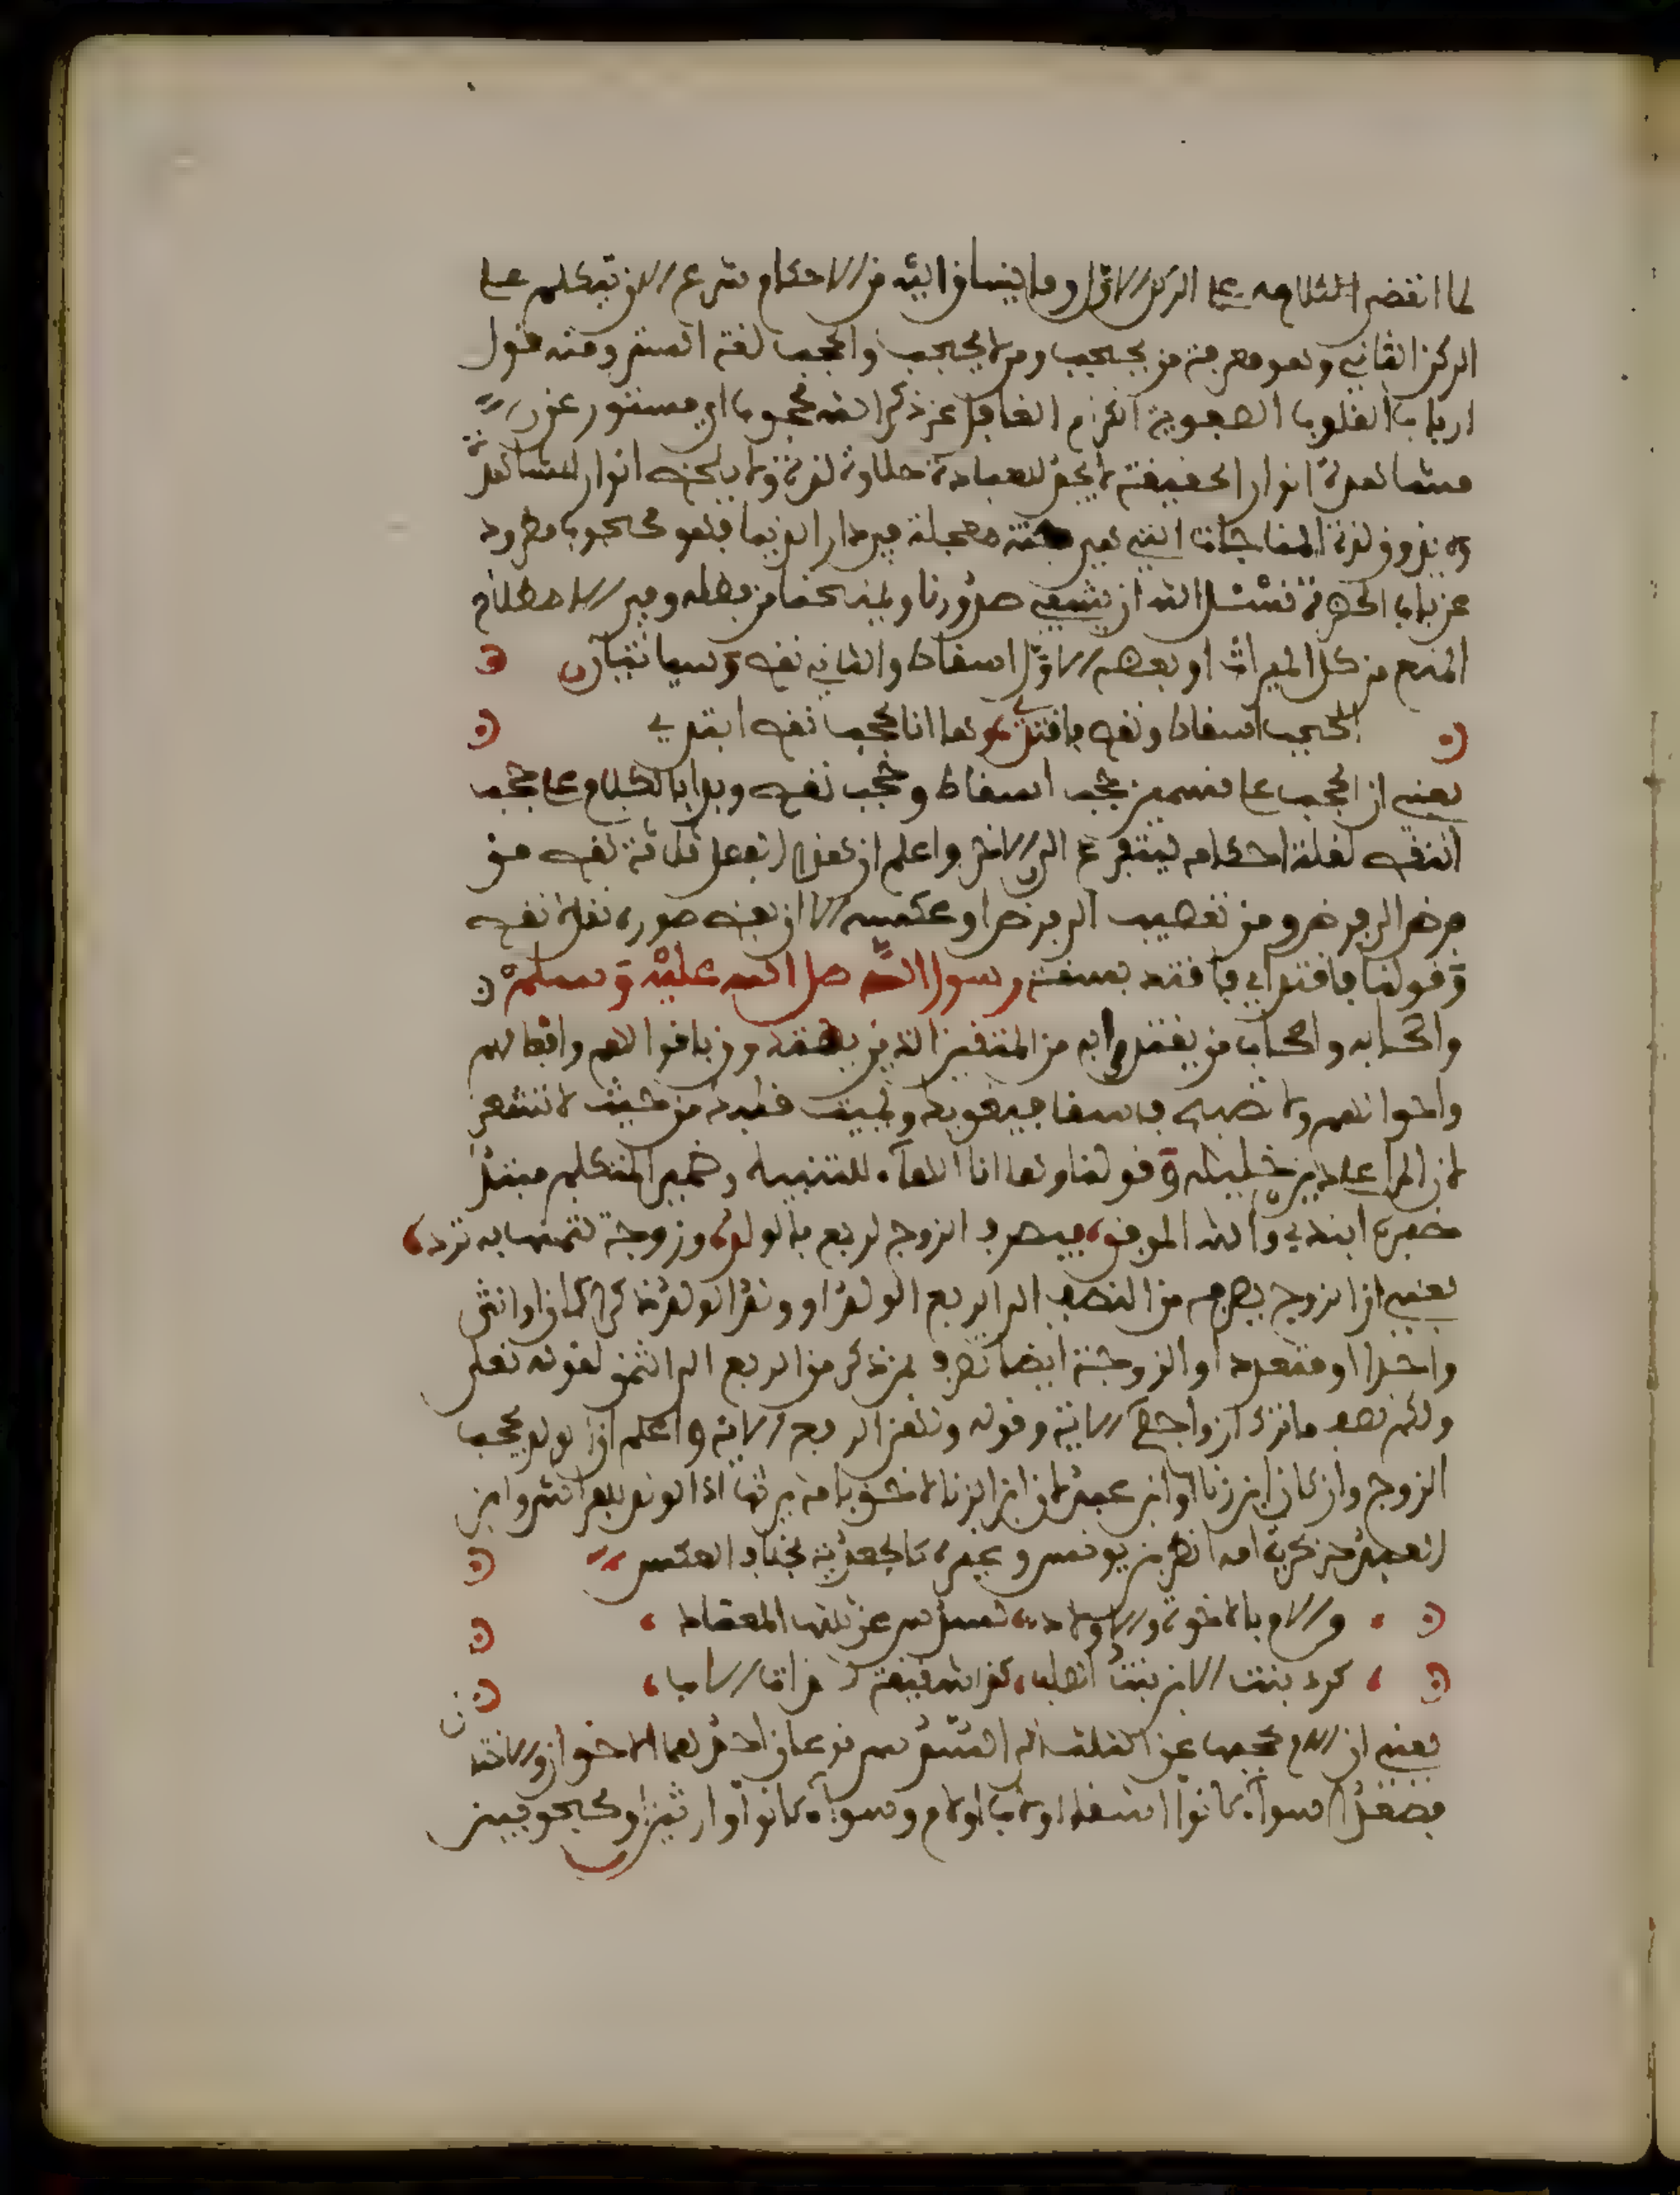 لما انقضى الكلام على الركن الاول وما ينساق اليه من الاحكام شرع الان يتكلم على
الركن الثاني وهو معرفة من يحجب ومن لا يحجب والحجب لغة الستر ومنه قول
ارباب القلوب الصوفية الكرام الغافل عن ذكر الله محجوب اي مستور عن
مشاهدة انوار الحقيقة لا يجد للعبادة حلاوة لذة ولا يلحقه انوار المشاهدة
ولا يذوق لذة المناجات التي هي جنة معجلة في دار الدنيا فهو محجوب مطرود
عن باب الحضرة نسئل الله ان يشفي صدورنا ويمنحنا من فضله وفي الاصطلاح
المنع من كل الميراث او بعضه الاول اسقاط والثاني نقص وسياتيان
الحجب اسقاط ونقص فاقتد وها انا بحجب نقص ابتدي
يعني ان الحجب على قسمين حجب اسقاط وحجب نقص وبدا بالكلام على حجب
النقص لقلة احكامه ليتفرغ الى الاخر واعلم ان هذا ثلاثة نقص من
فرض الى فرض ومن تعصيب الى فرض او عكسه الا ان بعض صوره نقل لا نقص
وقولنا فاقتد اي فاقتد بسنة رسول الله صلى الله عليه وسلم
واصحابه واصحاب من يقتدى به من المتقين الذين يقتدون باقوالهم وافعالهم
واحوالهم ولا تصحب فاسقا فيغويك ويميت قلبك من حيث لا تشعر
لان المرا على دين خليله وقولنا وها انا الهاء للتنبيه وضمير المتكلم مبتدأ
خبره ابتدي والله الموفق فيصرف الزوج لربع بالولد وزوجة لثمنها به ترد
يعني ان الزوج يصرفه من النصف الى الربع الولد او ولد الولد ذكرا كان او انثى
واحدا او متعددا والزوجة ايضا تصرف بمن ذكر من الربع الى الثمن لقوله تعلى
ولكم نصف ما ترك ازواجكم الاية وقوله ولهن الربع الاية واعلم ان الولد يحجب
الزوج وان كان ابن زنا او ابن عبد لان ابن الزنا لاحق بامه يرثها اذ الولد للفراش وابن
العبد حر بحرية امه انظر بن يونس وغيره كالجعدية بخلاف العكس
والام بالاخوة والاولاد لسدس عن ثلثها المعتاد
كرد بنت الابن بنت الصلب كذا شقيقة لاخرات الاب
يعني ان الام يحجبها عن الثلث الى السدس نوعان احدهما الاخوان والاختان
فصعدا سوآء كانوا اشقا او لاب او لام وسوآء كانوا وارثين او محجوبين